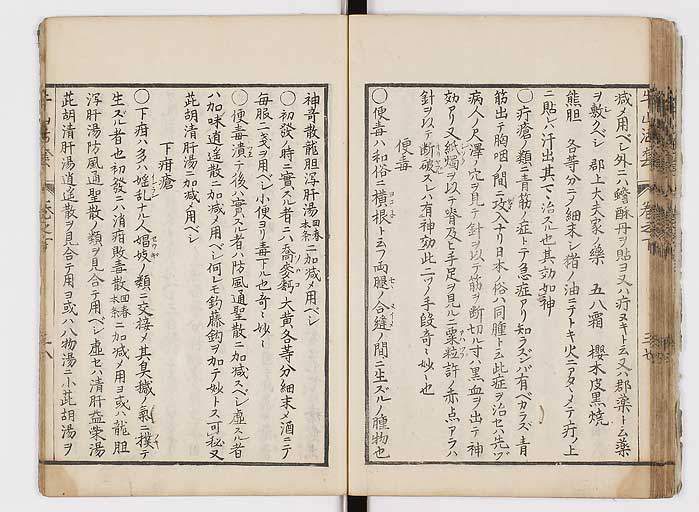 減メ用ベシ外ニハ蟾酥丹ヲ貼ヨ又ハ疔ヌキト云又ハ郡藥ト云藥
ヲ敷クベシ　郡上大夫家ノ藥　五八霜　櫻木皮黒焼
熊胆　各等分ニメ細末シ猪ノ油ニテトキ火ニアタヽメテ疔ノ上
ニ貼ハ汗出其マヽ治スル也其効如神
〇疔瘡ノ類ニ青筋ノ症トテ急症アリ知ラズンバ有ベカラズ青
筋出テ胸咽ノ間ニ攻入ナリ日本ノ俗ハ同腫ト云此症ヲ治セハ先ヅ
病人ノ尺澤ノ穴ヲ見テ針ヲ以テ筋ヲ断切ルベシ黒血ヲ出テ神
効アリ又紙燭ヲ以テ脊及ヒ手足ヲ見ルニ粟粒許ノ赤点アラハ
針ヲ以テ断破スレハ有神効此二ツノ手段奇ヽ妙ヽ也
便毒
〇便毒ハ和俗ニ横根ト云フ両腿ノ合縫ノ間ニ生ズルノ腫物也
神奇散龍胆瀉肝湯回春本条ニ加減メ用ベシ
〇初發ノ時ニ實スル者ニハ喬麥麪大黄各等分細末メ酒ニテ
毎服二戔ヲ用ベシ小便ヨリ毒下ル也奇ヽ妙ヽ
〇便毒潰テノ後ハ實スル者ハ防風通聖散ニ加減スベシ虚スル者
ハ加味逍遥散ニ加減メ用ベシ何レモ釣藤鈎ヲ加テ妙トス可秘又
茈胡清肝湯ニ加減メ用ベシ
下疳瘡
〇下疳ハ多ハ婬乱ナル人娼妓ノ類ニ交接メ其臭穢ノ氣ニ撲テ
生ズル者也初發ニハ消疳敗毒散回春本条ニ加減メ用ヨ或ハ龍胆
瀉肝湯防風通聖散ノ類ヲ見合テ用ベシ虚セハ清肝益栄湯
茈胡清肝湯逍遥散ヲ見合テ用ヨ或ハ八物湯ニ小茈胡湯ヲ